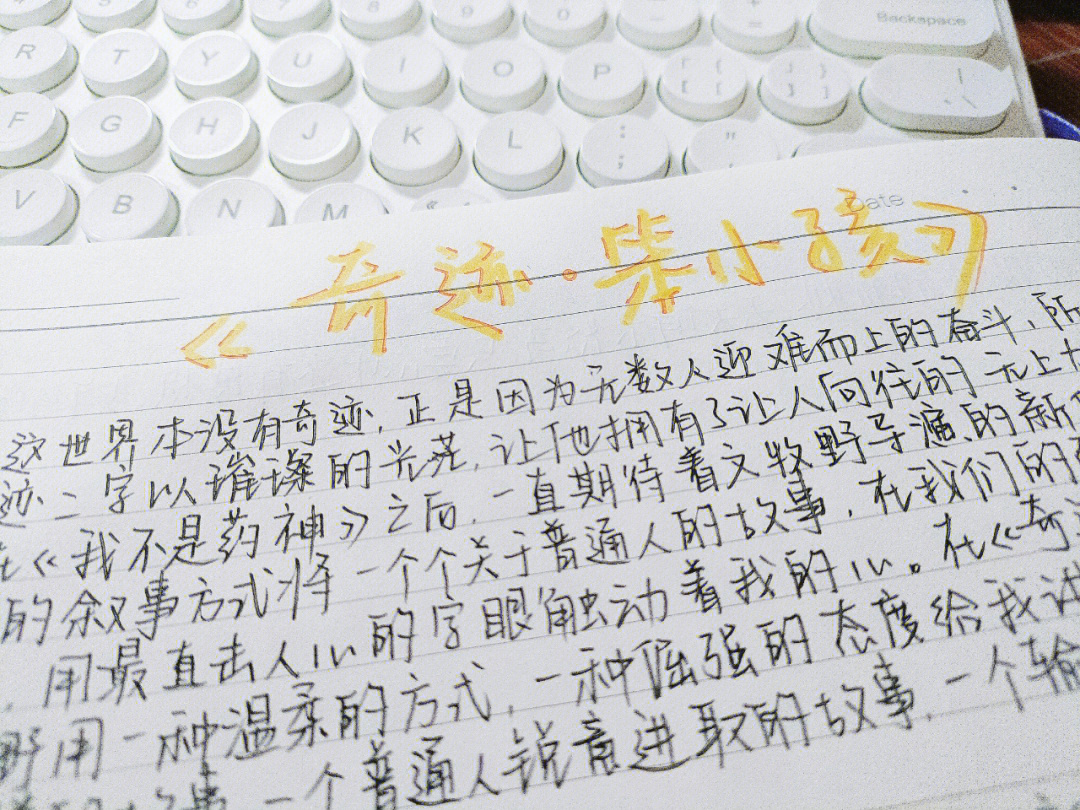 7 8 9 0 - _ + = Backspace
R T Y U I O P { [ } ] | \
F G H J K L : ; "
V B N M
Date
《奇迹·笨小孩》
这世界本没有奇迹,正是因为无数人迎难而上的奋斗,所
迹二字以璀璨的光芒,让他拥有了让人向往的无上
《我不是药神》之后,一直期待着文牧野导演的新
的叙事方式将一个个关于普通人的故事,在我们的
,用最直击人心的字眼触动着我的心。在《奇
野用一种温柔的方式,一种倔强的态度给我讲
一个普通人锐意进取的故事,一个输